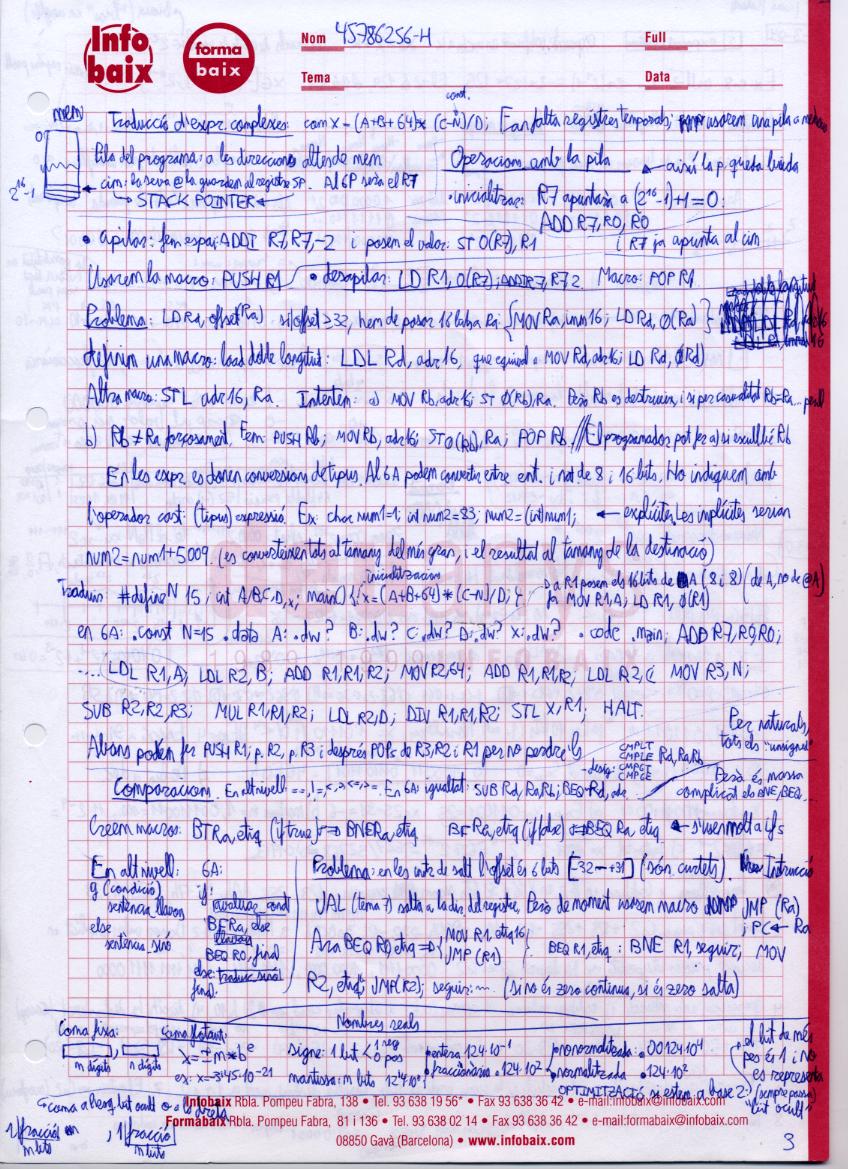 Info baix
forma baix
Nom 45786256-H Full
Tema Data
cont.
mem
Traducció d'expr. complexes: com x - (A+B+64)*(C-N)/D; Fan falta registres temporals, usarem una pila a memòria
0
2^16-1
Pila del programa: a les direccions altes de mem
cim: la seva @ la guardem al registre SP. Al 6P serà el R7
→ STACK POINTER ←
Operacions amb la pila ← així la p. queda buida
· inicialitzar: R7 apuntarà a (2^16-1)+1=0:
ADD R7, R0, R0
• apilar: fem espai: ADDI R7, R7, -2 i posem el valor: ST 0(R7), R1 i R7 ja apunta al cim
Usarem la macro: PUSH R1 • desapilar: LD R1, 0(R7); ADDI R7, R7 2 Macro: POP R1
Problema: LD R1, offset(Ra) si offset ≥ 32, hem de posar 16 bits a Ra: { MOV Ra, imm16; LD Rd, Ø(Ra) }
definim una macro: load doble longitud: LDL Rd, adr16, que equival a MOV Rd, adr16; LD Rd, Ø(Rd)
Altra macro: STL adr16, Ra. Intentem: a) MOV Rb, adr16; ST Ø(Rb), Ra. Però Rb es destrueix, i si per casualitat Rb=Ra...
b) Rb ≠ Ra forçosament. Fem: PUSH Rb; MOV Rb, adr16; ST 0(Rb), Ra; POP Rb // El programador pot fer a) si escull bé Rb
En les expr. es donen conversions de tipus. Al 6A podem convertir entre ent. i nat. de 8 i 16 bits. Ho indiquem amb
l'operador cast: (tipus) expressió. Ex: char num1=1; int num2=83; num2=(int)num1; ← explícites. Les implícites serien
num2=num1+5009. (es converteixen tots al tamany del més gran, i el resultat al tamany de la destinació)
Traduim #define N 15; int A,B,C,D,x; main() { x=(A+B+64)*(C-N)/D; }
inicialitzacions
a R1 posem els 16 bits de A (8 i 8) (de A, no de @A)
fa MOV R1, A; LD R1, Ø(R1)
en 6A: .const N=15 .data A: .dw? B: .dw? C: .dw? D: .dw? X: .dw? .code .main; ADD R7, R0, R0;
.... LDL R1, A; LDL R2, B; ADD R1, R1, R2; MOV R2, 64; ADD R1, R1, R2; LDL R2, C MOV R3, N;
SUB R2, R2, R3; MUL R1, R1, R2; LDL R2, D; DIV R1, R1, R2; STL X, R1; HALT.
Abans podem fer PUSH R1; p. R2, p. R3 i després POPs de R3, R2 i R1 per no perdre'ls
Per naturals, tots els "unsigned"
Comparacions. En alt nivell ==, !=, <, >, <=, >= En 6A: igualtat: SUB Rd, Ra, Rb; BEQ Rd,
desig: CMPLT CMPLE CMPGT CMPGE Rd, Ra, Rb
Però és massa complicat els BNE, BEQ...
Creem macros: BT Ra, etiq (if true) ⇒ BNE Ra, etiq BF Ra, etiq (if false) ⇒ BEQ Ra, etiq ← s'usen molt a ifs
En alt nivell:
(condició)
sentència_llavors
else
sentència_sino
6A:
if: avaluar cond
BF Ra, else
llavors
BEQ R0, final
else: traduc sinó
final:
Problema: en les instr de salt l'offset és 6 bits [-32 → +31] (són curtets). Instrucció
JAL (tema 7) salta a la dir. del registre. Però de moment usarem macro JMP (Ra)
; PC ← Ra
Ara BEQ R0, etiq ⇒ { MOV R1, etiq16 JMP (R1) } BEQ R1, etiq: BNE R1, seguir; MOV
R2, etiq; JMP(R2); seguir: ... (si no és zero continua, si és zero salta)
Nombres reals
Coma fixa:
m dígits , n dígits
Coma flotant:
x = ± m * b^e
ex: x = -3'45·10^-21
signe: 1 bit < 1 neg 0 pos
mantissa: m bits
entera 124·10^-1
fraccionària 0.124·10^2
no normalitzada: 0.0124·10^4
normalitzada 0.124·10^2
el bit de més pes és 1 i no es representa (sempre passa) "bit ocult"
OPTIMITZACIÓ si estem a base 2:
→ coma a l'esq. bit ocult o a la dreta
1 fracció m bits , 1 fracció m bits
Infobaix Rbla. Pompeu Fabra, 138 • Tel. 93 638 19 56* • Fax 93 638 36 42 • e-mail:infobaix@infobaix.com
Formabaix Rbla. Pompeu Fabra, 81 i 136 • Tel. 93 638 02 14 • Fax 93 638 36 42 • e-mail:formabaix@infobaix.com
08850 Gavà (Barcelona) • www.infobaix.com
3